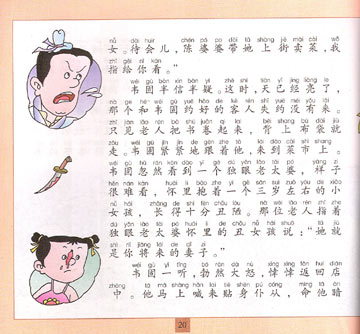 nǚ dāi huìr chén pó po dài tā shàng jiē mài cài wǒ
女。待会儿，陈婆婆带她上街卖菜，我
zhǐ gěi nǐ kàn
指给你看。”
wéi gù bàn xìn bàn yí zhè shí tiān yǐ jīng liàng le
韦固半信半疑。这时，天已经亮了，
nà ge hé wéi gù yuē hǎo de kè rén shī yuē méi yǒu lái
那个和韦固约好的客人失约没有来。
zhǐ jiàn lǎo rén bǎ shū juǎn qǐ lái bēi shàng bù dài jiù
只见老人把书卷起来，背上布袋就
zǒu wéi gù jǐn jǐn gēn zhe tā lái dào cài shì shàng
走。韦固紧紧地跟着他，来到菜市上。
wéi gù hū rán kàn dào yí gè dú yǎn lǎo tài pó yàng zi
韦固忽然看到一个独眼老太婆，样子
hěn nán kàn huái lǐ bào zhe yí gè sān suì zuǒ yòu de xiǎo
很难看，怀里抱着一个三岁左右的小
nǚ hái zhǎng de shí fēn chǒu lòu nà wèi lǎo rén zhǐ zhe
女孩，长得十分丑陋。那位老人指着
dú yǎn lǎo tài pó huái lǐ de chǒu nǚ hái shuō tā jiù
独眼老太婆怀里的丑女孩说：“她就
shì nǐ jiāng lái de qī zi
是你将来的妻子。”
wéi gù yì tīng bó rán dà nù xìng xìng fǎn huí diàn
韦固一听，勃然大怒，悻悻返回店
zhōng tā mǎ shàng hǎn lái tiē shēn pú cóng mìng tā àn
中。他马上喊来贴身仆从，命他暗
20